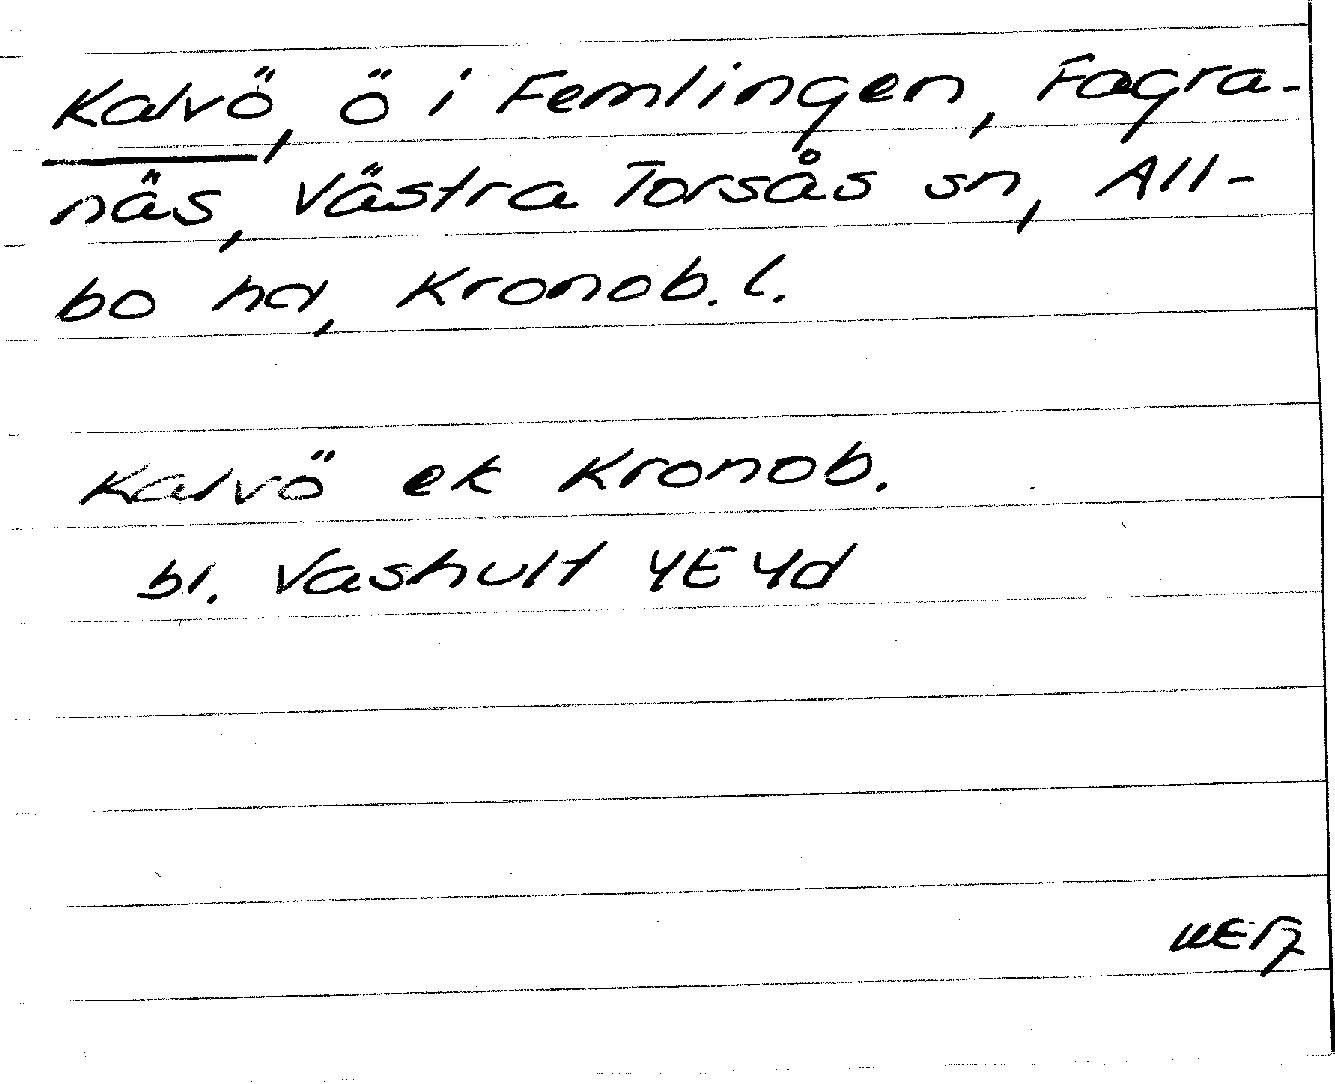 Kalvö, ö i Femlingen, Fagra-
näs, Västra Torsås sn, All-
bo hd, Kronob. l.
Kalvö ek Kronob.
bl. Vashult 4E4d